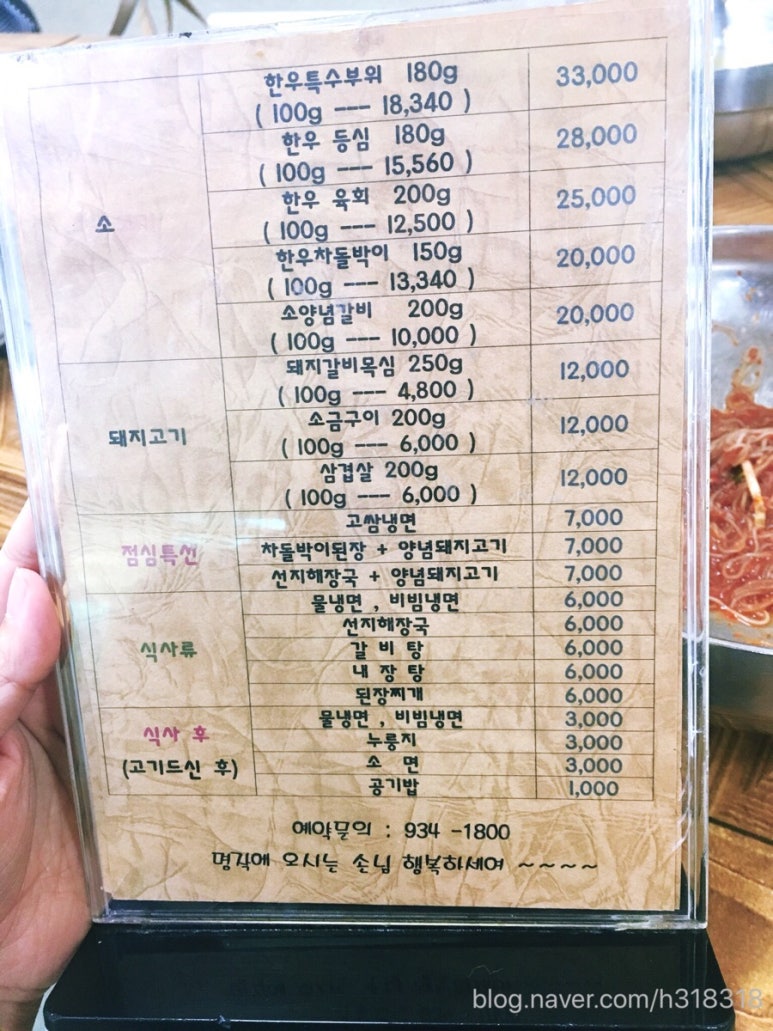 소
한우특수부위 180g 33,000
( 100g --- 18,340 )
한우 등심 180g 28,000
( 100g --- 15,560 )
한우 육회 200g 25,000
( 100g --- 12,500 )
한우차돌박이 150g 20,000
( 100g --- 13,340 )
소양념갈비 200g 20,000
( 100g --- 10,000 )
돼지고기
돼지갈비목심 250g 12,000
( 100g --- 4,800 )
소금구이 200g 12,000
( 100g --- 6,000 )
삼겹살 200g 12,000
( 100g --- 6,000 )
점심특선
고쌈냉면 7,000
차돌박이된장 + 양념돼지고기 7,000
선지해장국 + 양념돼지고기 7,000
식사류
물냉면 , 비빔냉면 6,000
선지해장국 6,000
갈 비 탕 6,000
내 장 탕 6,000
된장찌개 6,000
식사 후
(고기드신 후)
물냉면 , 비빔냉면 3,000
누룽지 3,000
소 면 3,000
공기밥 1,000
예약문의 : 934 -1800
명각에 오시는 손님 행복하세여 ~~~~
blog.naver.com/h318318